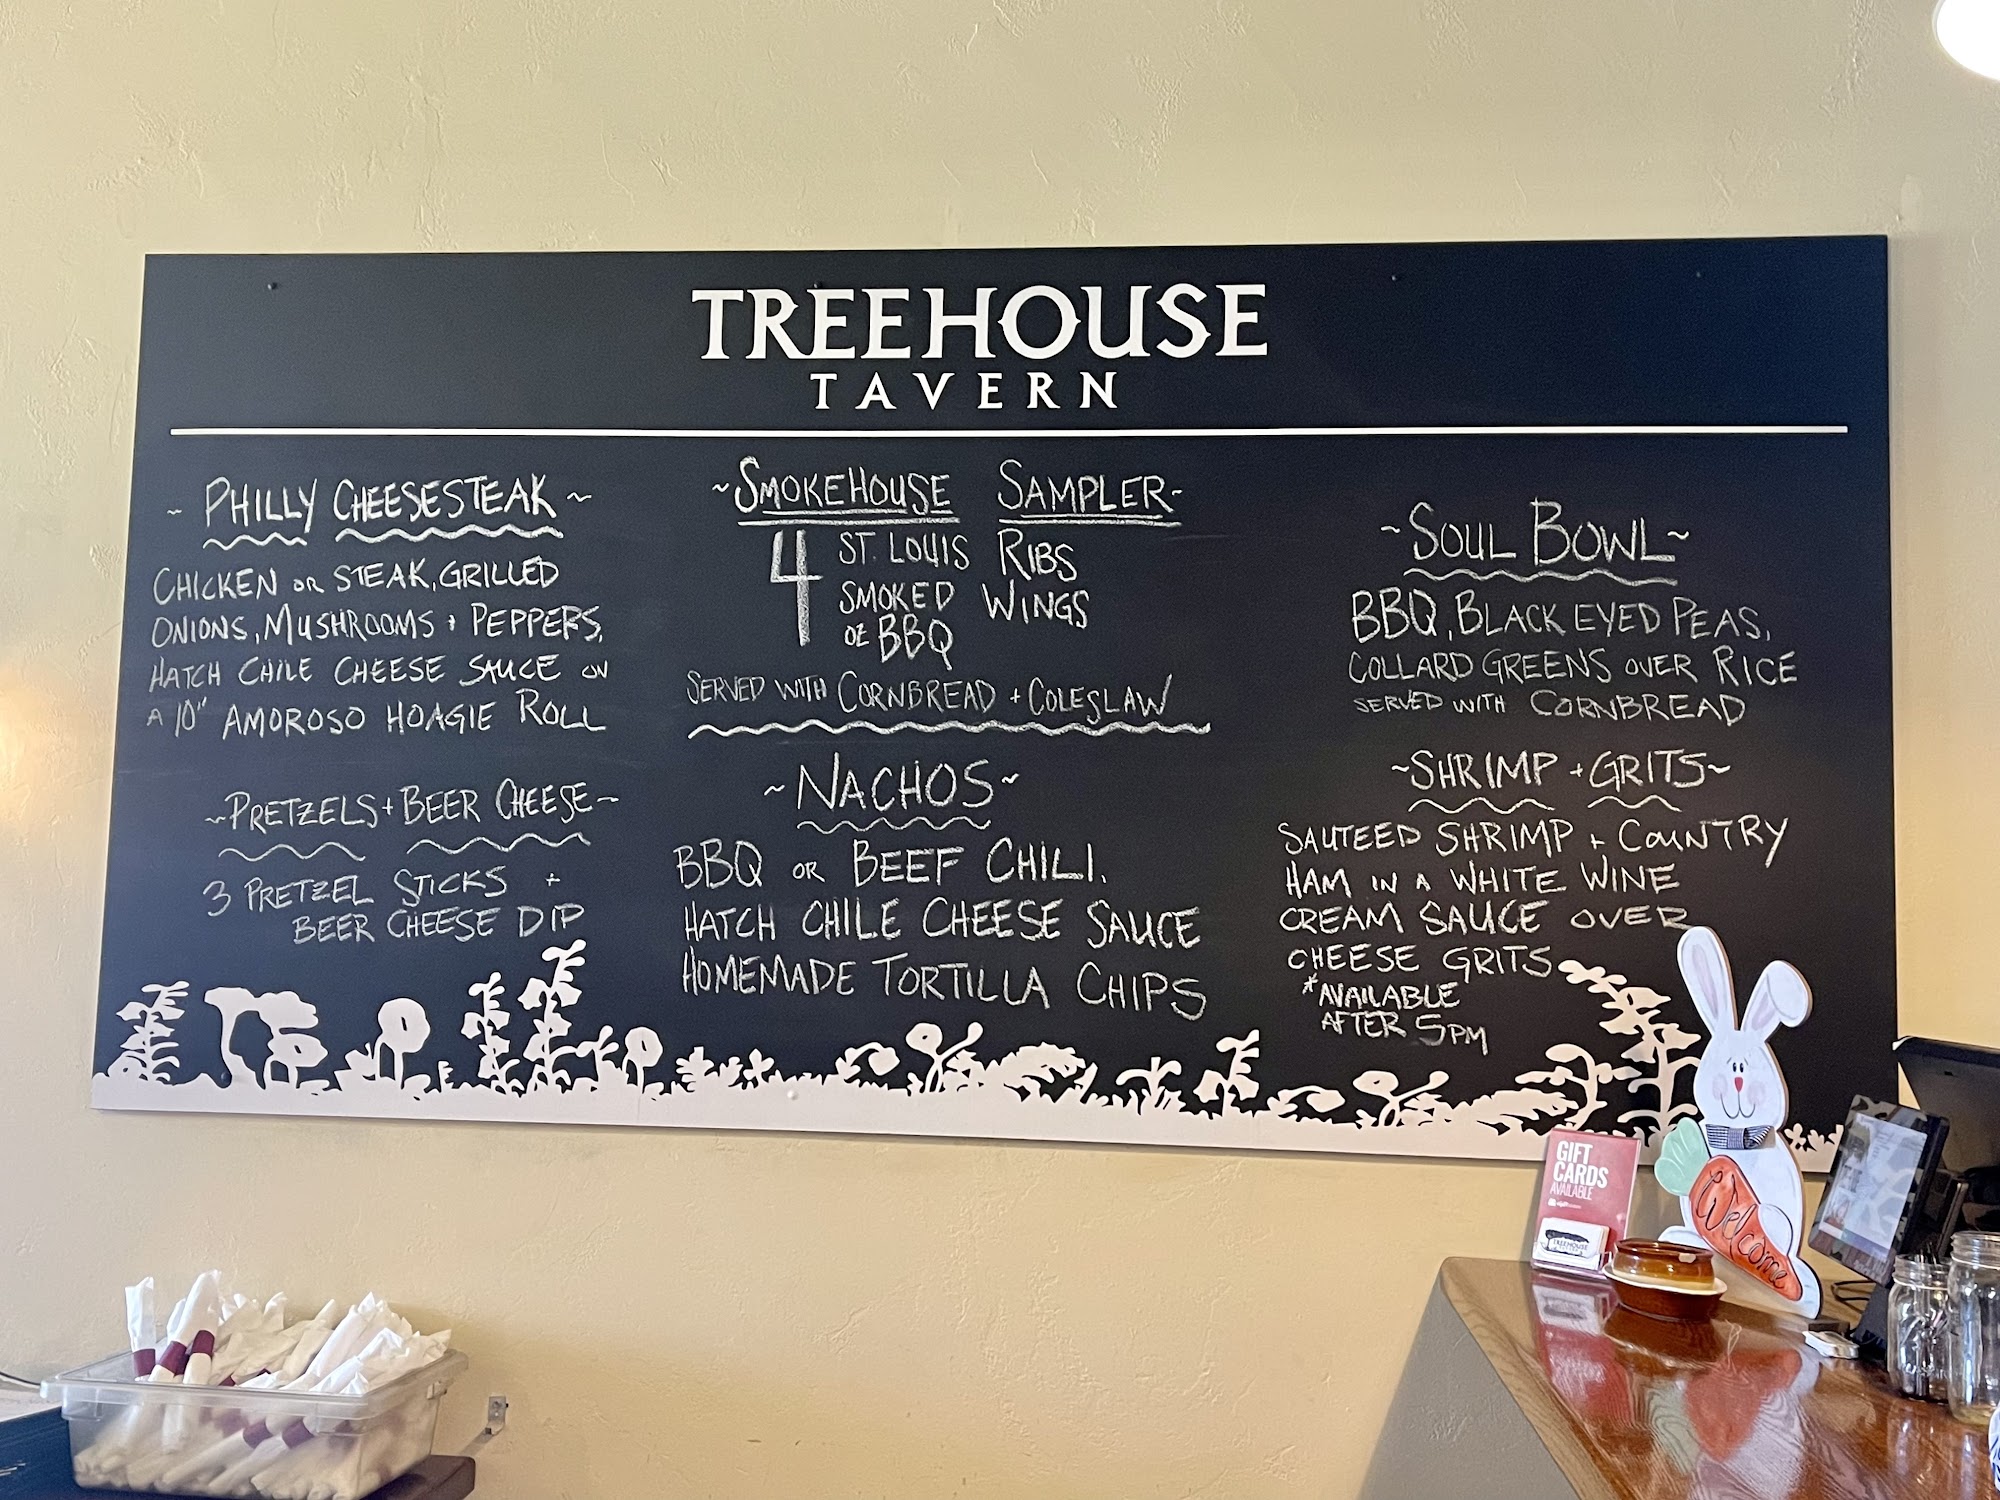 TREEHOUSE
TAVERN
~ PHILLY CHEESESTEAK ~
CHICKEN OR STEAK, GRILLED
ONIONS, MUSHROOMS + PEPPERS,
HATCH CHILE CHEESE SAUCE ON
A 10" AMOROSO HOAGIE ROLL
~PRETZELS + BEER CHEESE~
3 PRETZEL STICKS +
BEER CHEESE DIP
~SMOKEHOUSE SAMPLER~
4 ST. LOUIS RIBS
SMOKED WINGS
OZ BBQ
SERVED WITH CORNBREAD + COLESLAW
~NACHOS~
BBQ OR BEEF CHILI,
HATCH CHILE CHEESE SAUCE
HOMEMADE TORTILLA CHIPS
~SOUL BOWL~
BBQ, BLACK EYED PEAS,
COLLARD GREENS OVER RICE
SERVED WITH CORNBREAD
~SHRIMP + GRITS~
SAUTEED SHRIMP + COUNTRY
HAM IN A WHITE WINE
CREAM SAUCE OVER
CHEESE GRITS
*AVAILABLE
AFTER 5PM
GIFT
CARDS
AVAILABLE
TREEHOUSE
Welcome